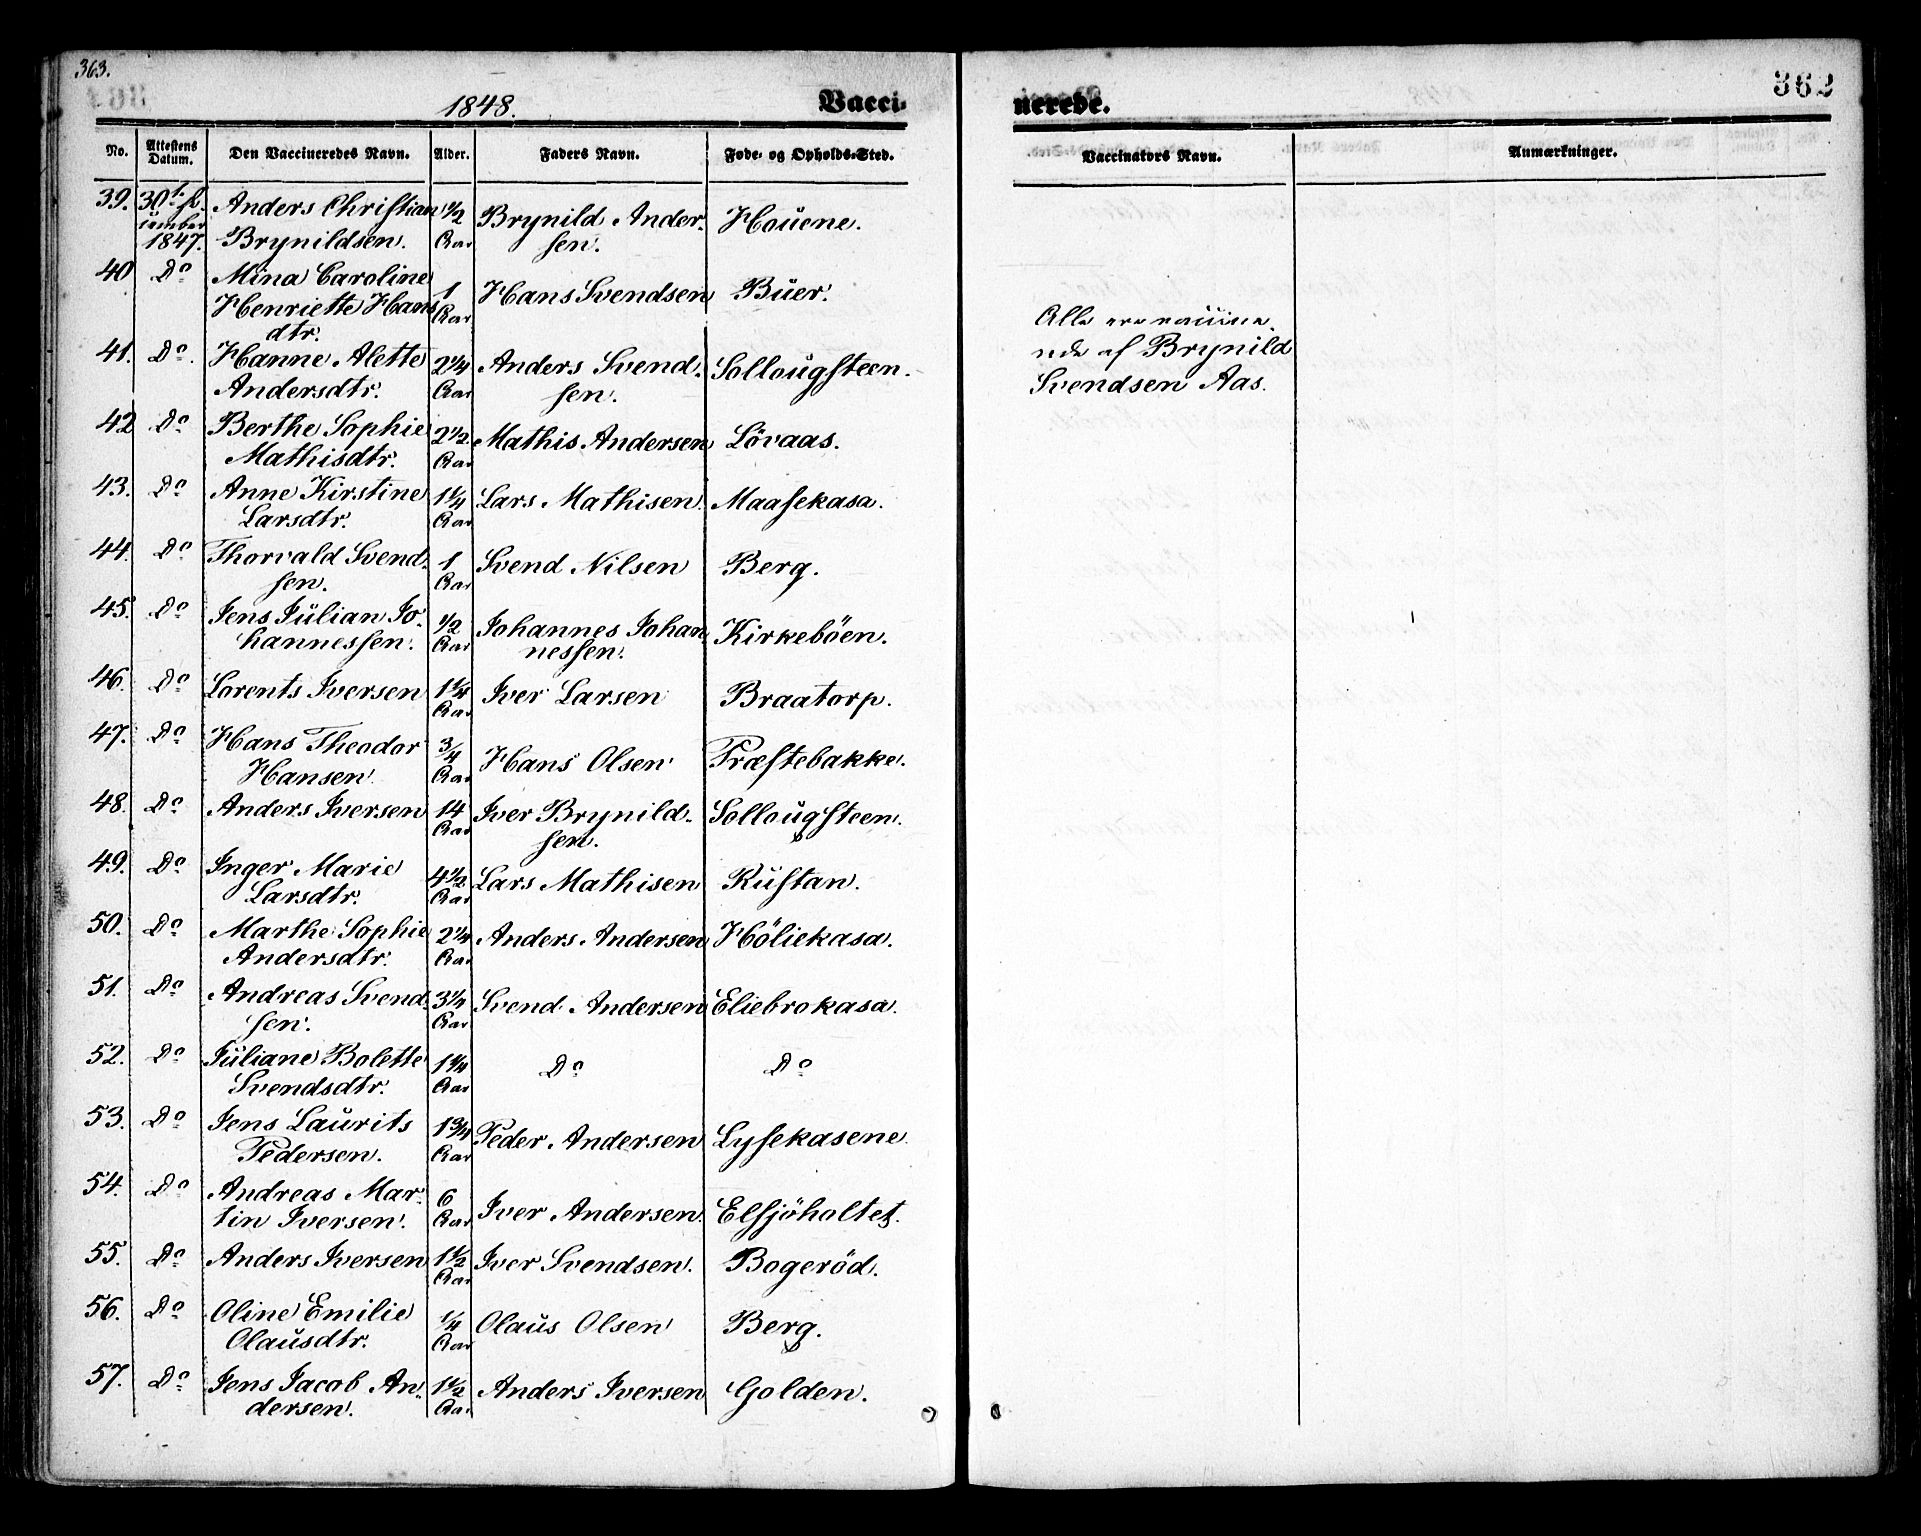 363.
1848.
Vacci-
No.
Attestens Datum.
Den Vaccineredes Navn.
Alder.
Faders Navn.
Føde- og Opholds-Sted.
39. 30t
1847.
Anders Christian 1/2 Brynild Ander- Houene.
Brynildsen. Aar sen.
40 Do Mina Caroline
Henriette Hans 1 Hans Svendsen Büer.
dtr. Aar
41. Do. Hanne Alette 2 1/4 Anders Svend- Sollougsteen.
Andersdtr. Aar sen.
42 Do Berthe Sophie 2 1/2 Mathis Andersen Lövaas.
Mathisdtr. Aar
43. Do Anne Kirstine 1 1/4 Lars Mathisen Maasekasa.
Larsdtr. Aar
44. Do Thorvald Svend- 1 Svend Nilsen Berg.
sen. Aar
45. Do Jens Julian Jo- 1/2 Johannes Johan- Kirkeböen.
hannessen. Aar nessen.
46. Do Lorents Iversen 1 1/4 Iver Larsen Braatorp.
Aar
47. Do Hans Theodor 3/4 Hans Olsen Præstebakke.
Hansen Aar
48. Do Anders Iversen 14 Iver Brynild- Sollougsteen.
Aar sen.
49. Do Inger Marie 4 1/2 Lars Mathisen Rustan.
Larsdtr. Aar
50. Do Marthe Sophie 2 1/4 Anders Andersen Höliekasa.
Andersdtr. Aar
51. Do Andreas Svend- Svend Andersen Eliebrokasa.
sen. Aar
52. Do Juliane Bolette Do Do
Svendsdtr. Aar
53. Do Jens Laurits 1 3/4 Peder Andersen Lysekasene
Pedersen. Aar
54. Do Andreas Mar- 6 Iver Andersen Elsjöholtet.
tin Iversen. Aar
55. Do Anders Iversen 1 1/2 Iver Svendsen. Bogeröd.
Aar
56. Do Oline Emilie 1/4 Olaus Olsen Berg.
Olausdtr. Aar
57. Do Jens Jacob An- 1 1/2 Anders Iversen Golden.
dersen. Aar
362
nerede.
Vaccinators Navn.
Anmærkninger.
Alle ere
af Brynild
Svendsen Aas.